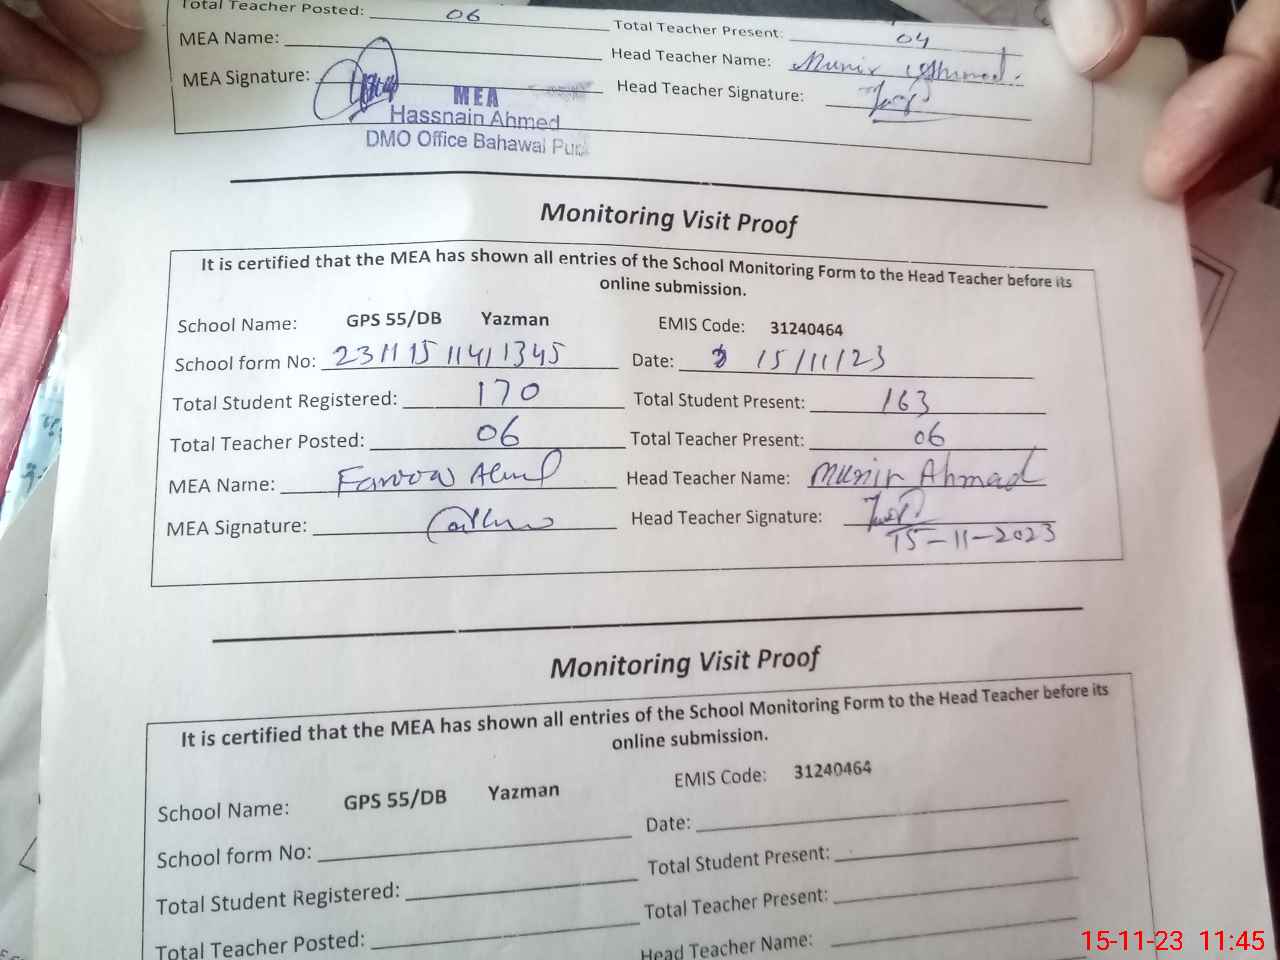 Total Teacher Posted: 06 Total Teacher Present: 04
MEA Name: Head Teacher Name: Munir Ahmed.
MEA Signature: Head Teacher Signature:
MEA
Hassnain Ahmed
DMO Office Bahawal Pur
Monitoring Visit Proof
It is certified that the MEA has shown all entries of the School Monitoring Form to the Head Teacher before its
online submission.
School Name: GPS 55/DB Yazman EMIS Code: 31240464
School form No: 23111511411345 Date: 15/11/23
Total Student Registered: 170 Total Student Present: 163
Total Teacher Posted: 06 Total Teacher Present: 06
MEA Name: Farooq Ahmed Head Teacher Name: Munir Ahmad
MEA Signature: Head Teacher Signature:
15-11-2023
Monitoring Visit Proof
It is certified that the MEA has shown all entries of the School Monitoring Form to the Head Teacher before its
online submission.
School Name: GPS 55/DB Yazman EMIS Code: 31240464
School form No: Date:
Total Student Registered: Total Student Present:
Total Teacher Posted: Total Teacher Present:
Head Teacher Name:
15-11-23 11:45